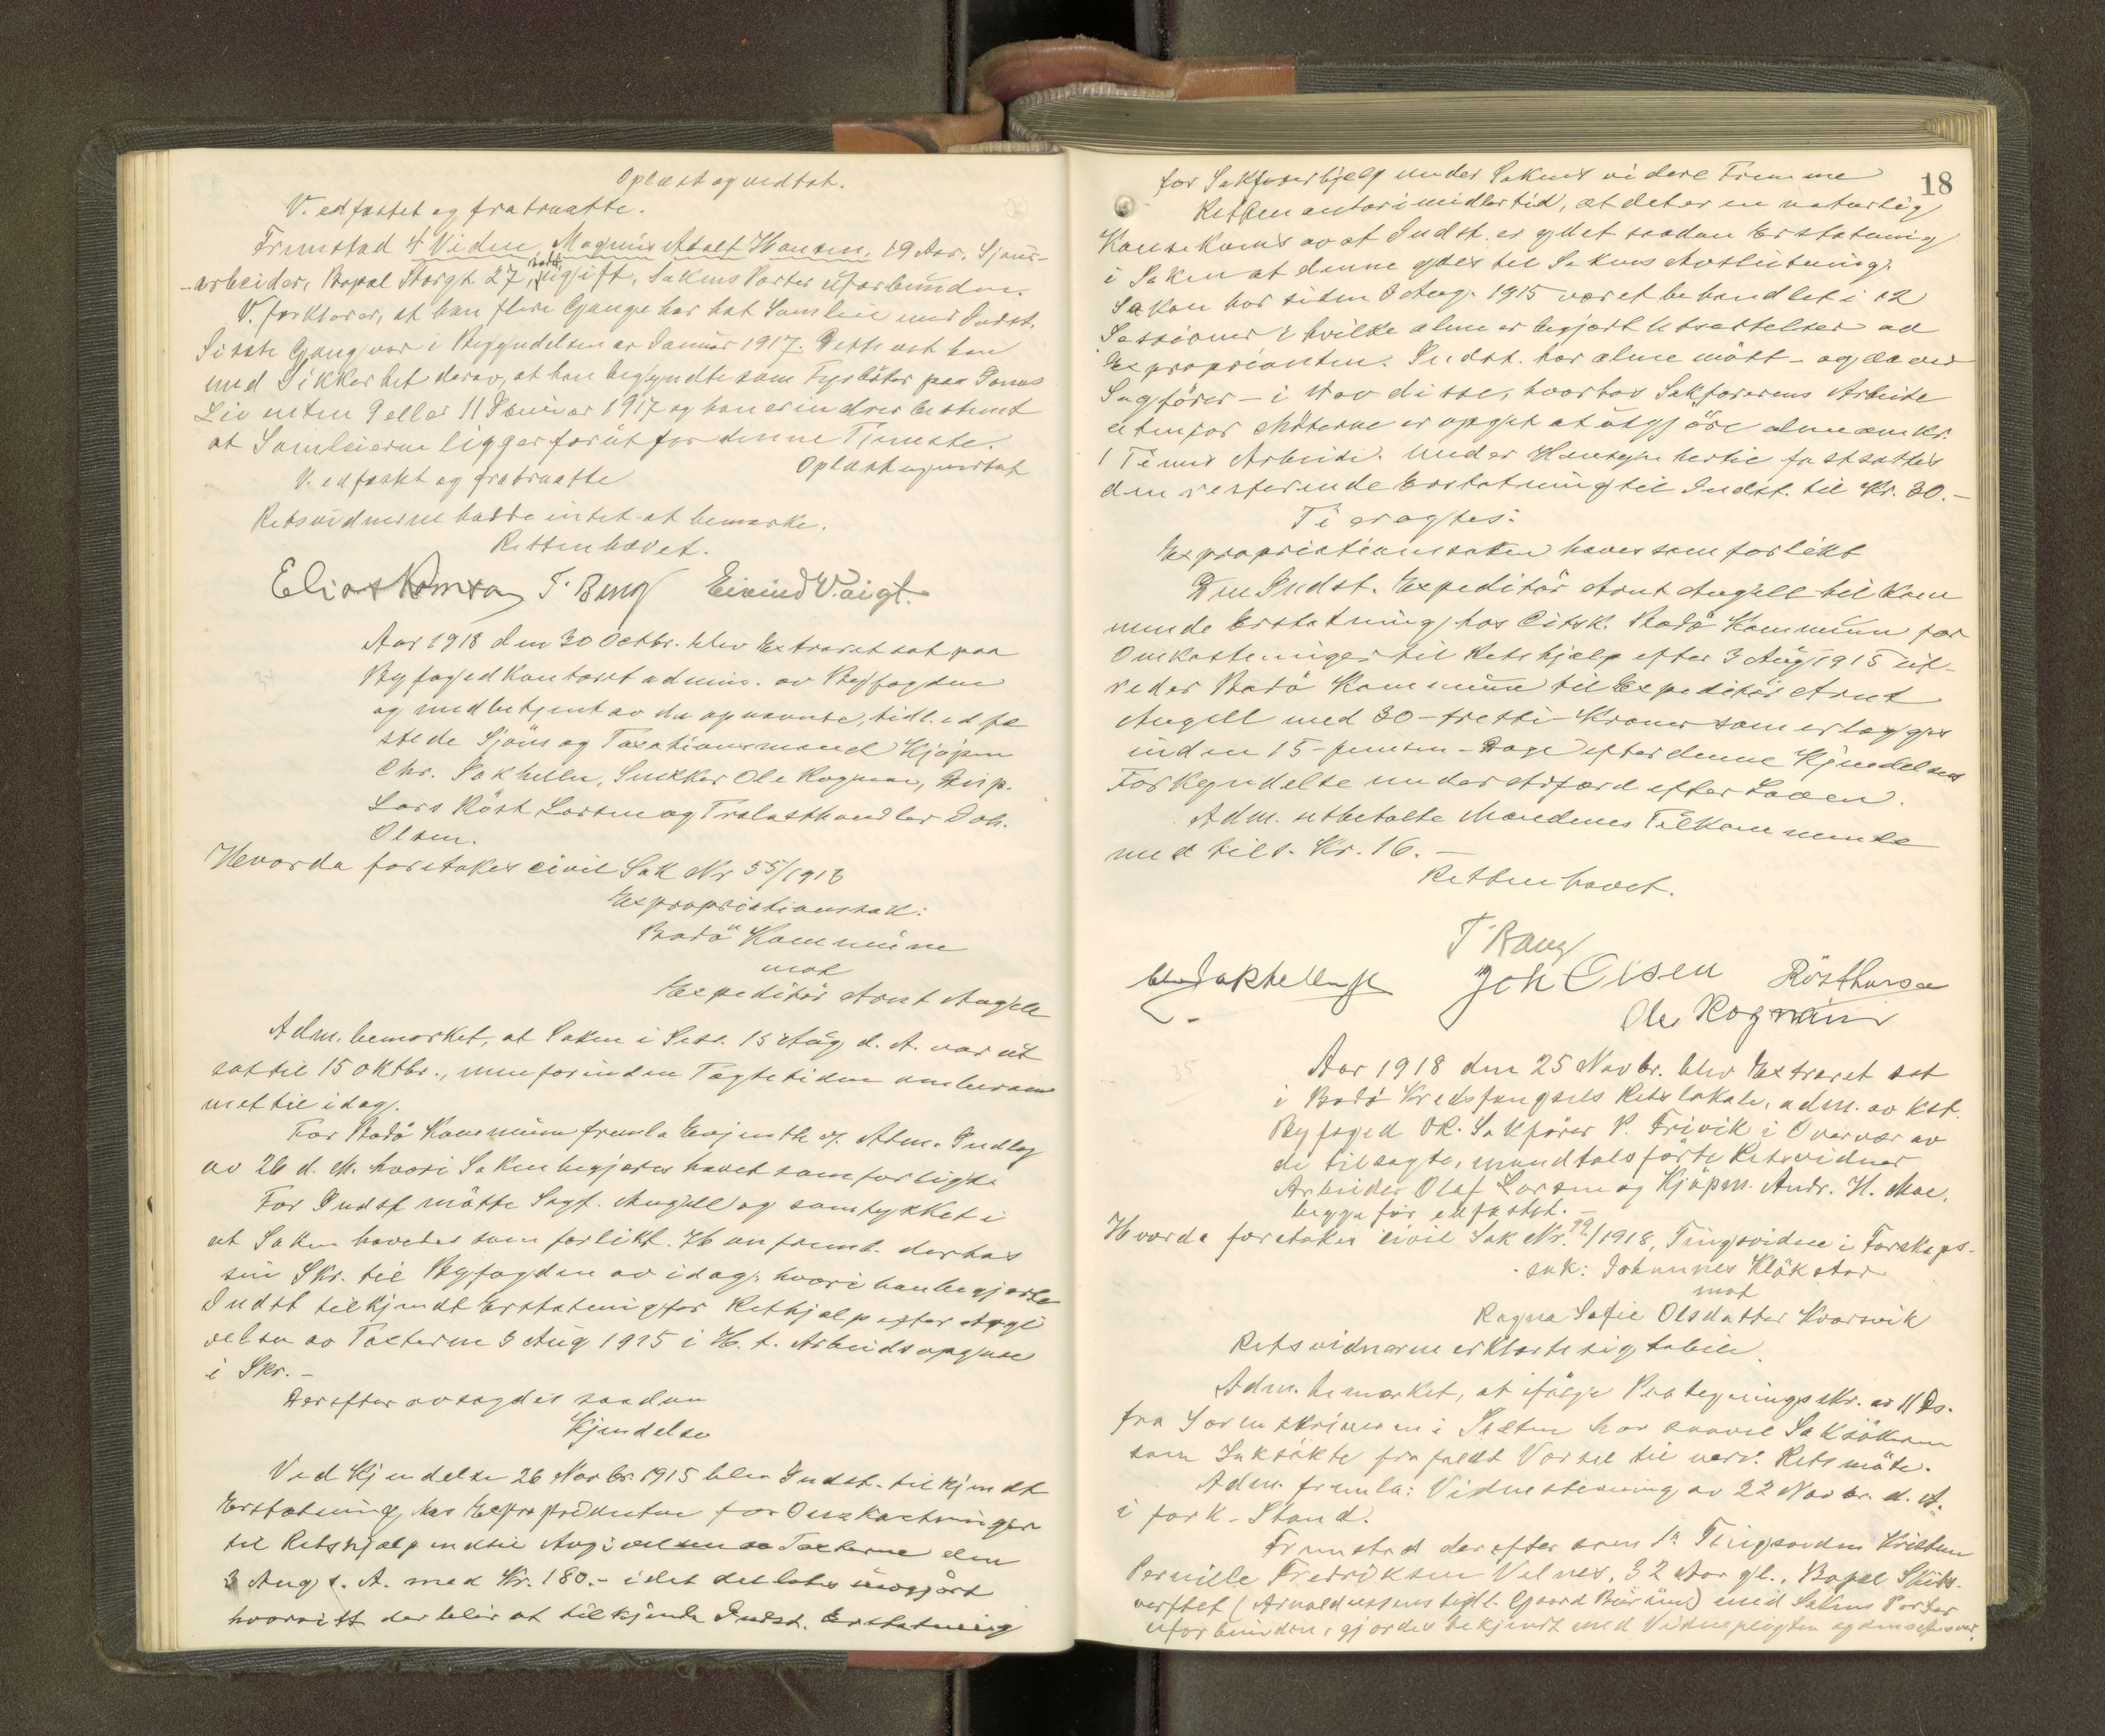 Oplæst og vedtat.
V. edfæstet og fratraatte.
Fremstod 4 Vidne, Magnus Adolf Hansen, 19 Aar, Sjaue-
arbeider, Bopæl Storgt. 27, ugift, Sakens Parter uforbunden.
V. forklarer, at han flere Gange har hat Samleie med Indst.
Siste Gang var i Begyndelsen av Januar 1917. Dette vet han
med Sikkerhet derav, at han begyndte som Fyrböter paa
enten 9 eller 11 Januar 1917 og han erindrer bestemt
at Samleierne ligger forut for denne Tjeneste.
Oplæst og vedtat
V. edfæstet og fratraatte
Retsvidnerne hadde intet at bemerke.
Retten hævet.
Elias T. Bang Eivind Voigt.
34
Aar 1918 den 30 Octbr. blev Extraret sat paa
Byfogedkontoret admin. av Byfogden
og medbetjent av de opnævnte, tidl. edfæ
stede Sjöns og Taxationsmænd Kjöpm
Chr. Jakhelln, Snekker Ole Rognan, Disp.
Lars Röst Larsen og Trelasthandler Joh.
Olsen.
Hvorda foretokes civil Sak Nr 55/1918
Expropriationssak:
Bodö Kommune
mot
Expeditör Arnt Angell
Adm. bemerket, at Saken i Sess. 15 Aug d. A. var ut
sat til 15 Oktbr., men forinden Tægtetiden omberam
met til idag.
For Bodö Kommune fremla Evjenth v. Atm. Indlæg
av 26 d. M. hvori Saken begjæres hævet som forligt.
For Indst mötte Sagf. Angell og samtykket i
at Saken hævedes som forlikt. Han freml. derhos
sin Skr. til Byfogden av idag, hvori han begjærte
Indst tilkjendt Erstatning for Retshjælp efter Avgi
velsen av Taxterne 3 Aug 1915 i H. t. Arbeidsopgave
i Skr. -
Derefter avsagdes saadan
Kjendelse
Ved Kjendelse 26 Novbr. 1915 blev Indst. tilkjendt
Erstatning hos Expropridenten for Omkostninger
til Retshjælp indtil Avgivelsen av Taxterne den
3 Aug s. A. med Kr. 180.- idet det lotes uavgjort
hvorvidt der blir at tilkjende Indst. Erstatning
18
for Sakförerhjelp under Sakens videre Fremme
Retten antar imidlertid, at det er en naturlig
Konsekvens av at Indst. er ydet saadan Erstatning
i Saken at denne ydes til Sakens Avslutning.
Saken har siden 3 Aug. 1915 været behandlet i 12
Sessioner, i hvilke alene er begjært Utsættelser ad
Exproprianten. Indst. har alene mött - og da ved
Sagförer - i 4 av disse, hvorhos Sakförerens Arbeide
utenfor Möterne er opgit at utgjöre alene omkr.
1 Times Arbeide. Under Hensyn hertil fastsættes
den resterende Erstatning til Indst. til Kr. 30.-
Ti eragtes:
Expropriationssaken hæves som forlikt
Den Indst. Expeditör Arnt Angell tilkom
mende Erstatning hos Citsk. Bodö Kommune for
Omkostninger til Retshjælp efter 3 Aug 1915 ut-
reder Bodö Kommune til Expeditör Arnt
Angell med 30 - tretti - Kroner som erlægges
inden 15 - femten - Dage efter denne Kjendelses
Forkyndelse under Adfærd efter Loven.
Adm. utbetalte Mændenes Tilkommende
med tils. Kr. 16.-
Retten hævet.
T. Bang
Chr Jakhelln Joh Olsen Röst Larsen
Ole Rognan
35
Aar 1918 den 25 Novbr. blev Extraret sat
i Bodö Kredsfængsels Retslokale, adm. av kst.
Byfoged OR. Sakförer P. Trivik i Overvær av
de tilsagte, mandtalsförte Retsvidner
Arbeider Olaf Larsen og Kjöpm. Andr. H. Moe,
begge för edfæstet. -
Hvorda foretokes civil Sak Nr. 99/1918, Tingsvidne i Farskaps-
sak: Johannes Klökstad
mot
Ragna Sofie Olsdatter Kvarsvik
Retsvidnerne erklærte sig habile.
Adm. bemærket, at ifölge Paategningsskr. av 11 ds.
fra Sorenskriveren i Salten har saavel Saksökeren
som Saksökte frafaldt Varsel til nærv. Retsmöte.
Adm. fremla: Vidnestevning av 22 Novbr. d. A.
i fork. Stand.
Fremstod derefter som 1ste Tingsvidne Kristine
Pernille Fredriksen Velnes, 32 Aar gl., Bopæl Skibs-
verftet (Arnoldussens tidl. Gaard Burum) med Sakens Parter
uforbunden, gjordes bekjendt med Vidnepligten og dens Ansvar,